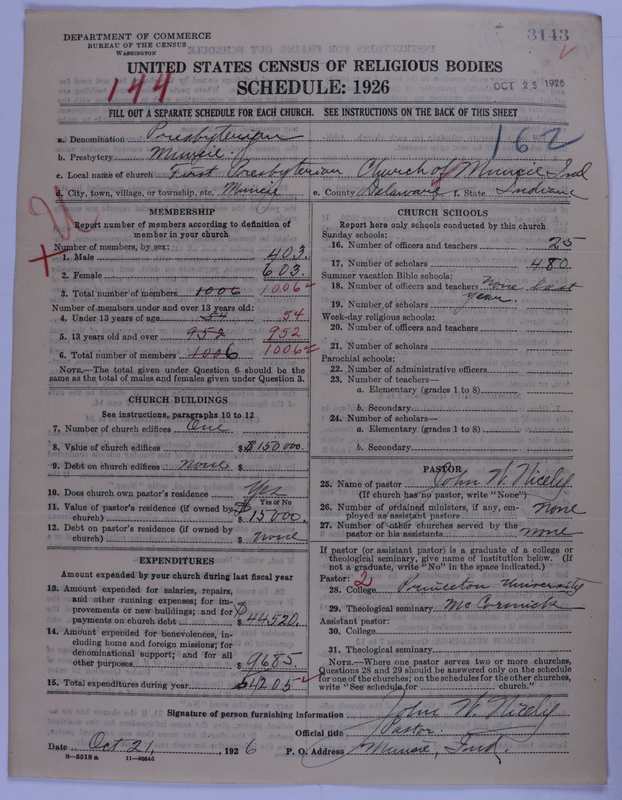 DEPARTMENT OF COMMERCE
BUREAU OF THE CENSUS
WASHINGTON
3143
UNITED STATES CENSUS OF RELIGIOUS BODIES
144
SCHEDULE: 1926
OCT 25 1926
FILL OUT A SEPARATE SCHEDULE FOR EACH CHURCH. SEE INSTRUCTIONS ON THE BACK OF THIS SHEET
162
a. Denomination Presbyterian
b. Presbytery Muncie
c. Local name of church First Presbyterian Church of Muncie Ind
d. City, town, village, or township, etc. Muncie e. County Delaware f. State Indiana
MEMBERSHIP
Report number of members according to definition of member in your church
Number of members, by sex:
1. Male 403.
2. Female 603.
3. Total number of members 1006 1006
Number of members under and over 13 years old:
4. Under 13 years of age 54 54
5. 13 years old and over 952 952
6. Total number of members 1006 1006
NOTE.—The total given under Question 6 should be the same as the total of males and females given under Question 3.
CHURCH BUILDINGS
See instructions, paragraphs 10 to 12
7. Number of church edifices One
8. Value of church edifices $ $150000.
9. Debt on church edifices none $
10. Does church own pastor's residence Yes
Yes or No
11. Value of pastor's residence (if owned by church) $ $15000.
12. Debt on pastor's residence (if owned by church) $ none
EXPENDITURES
Amount expended by your church during last fiscal year
13. Amount expended for salaries, repairs, and other running expenses; for improvements or new buildings; and for payments on church debt $ $44520.
14. Amount expended for benevolences, including home and foreign missions; for denominational support; and for all other purposes $ 9685
15. Total expenditures during year 54205
CHURCH SCHOOLS
Report here only schools conducted by this church
Sunday schools:
16. Number of officers and teachers 25
17. Number of scholars 480
Summer vacation Bible schools:
18. Number of officers and teachers None last
year.
19. Number of scholars
Week-day religious schools:
20. Number of officers and teachers
21. Number of scholars
Parochial schools:
22. Number of administrative officers
23. Number of teachers—
a. Elementary (grades 1 to 8)
b. Secondary
24. Number of scholars—
a. Elementary (grades 1 to 8)
b. Secondary
PASTOR
25. Name of pastor John W. Nicely
(If church has no pastor, write "None")
26. Number of ordained ministers, if any, employed as assistant pastors none
27. Number of other churches served by the pastor or his assistants none
If pastor (or assistant pastor) is a graduate of a college or theological seminary, give name of institution below. (If not a graduate, write "No" in the space indicated.)
Pastor: 2
28. College Princeton University
29. Theological seminary McCormick
Assistant pastor:
30. College
31. Theological seminary
NOTE.—Where one pastor serves two or more churches, Questions 28 and 29 should be answered only on the schedule for one of the churches; on the schedules for the other churches, write "See schedule for church."
Signature of person furnishing information John W. Nicely
Official title Pastor.
Date Oct 21, 1926 P. O. Address Muncie, Ind.
8—5518 a